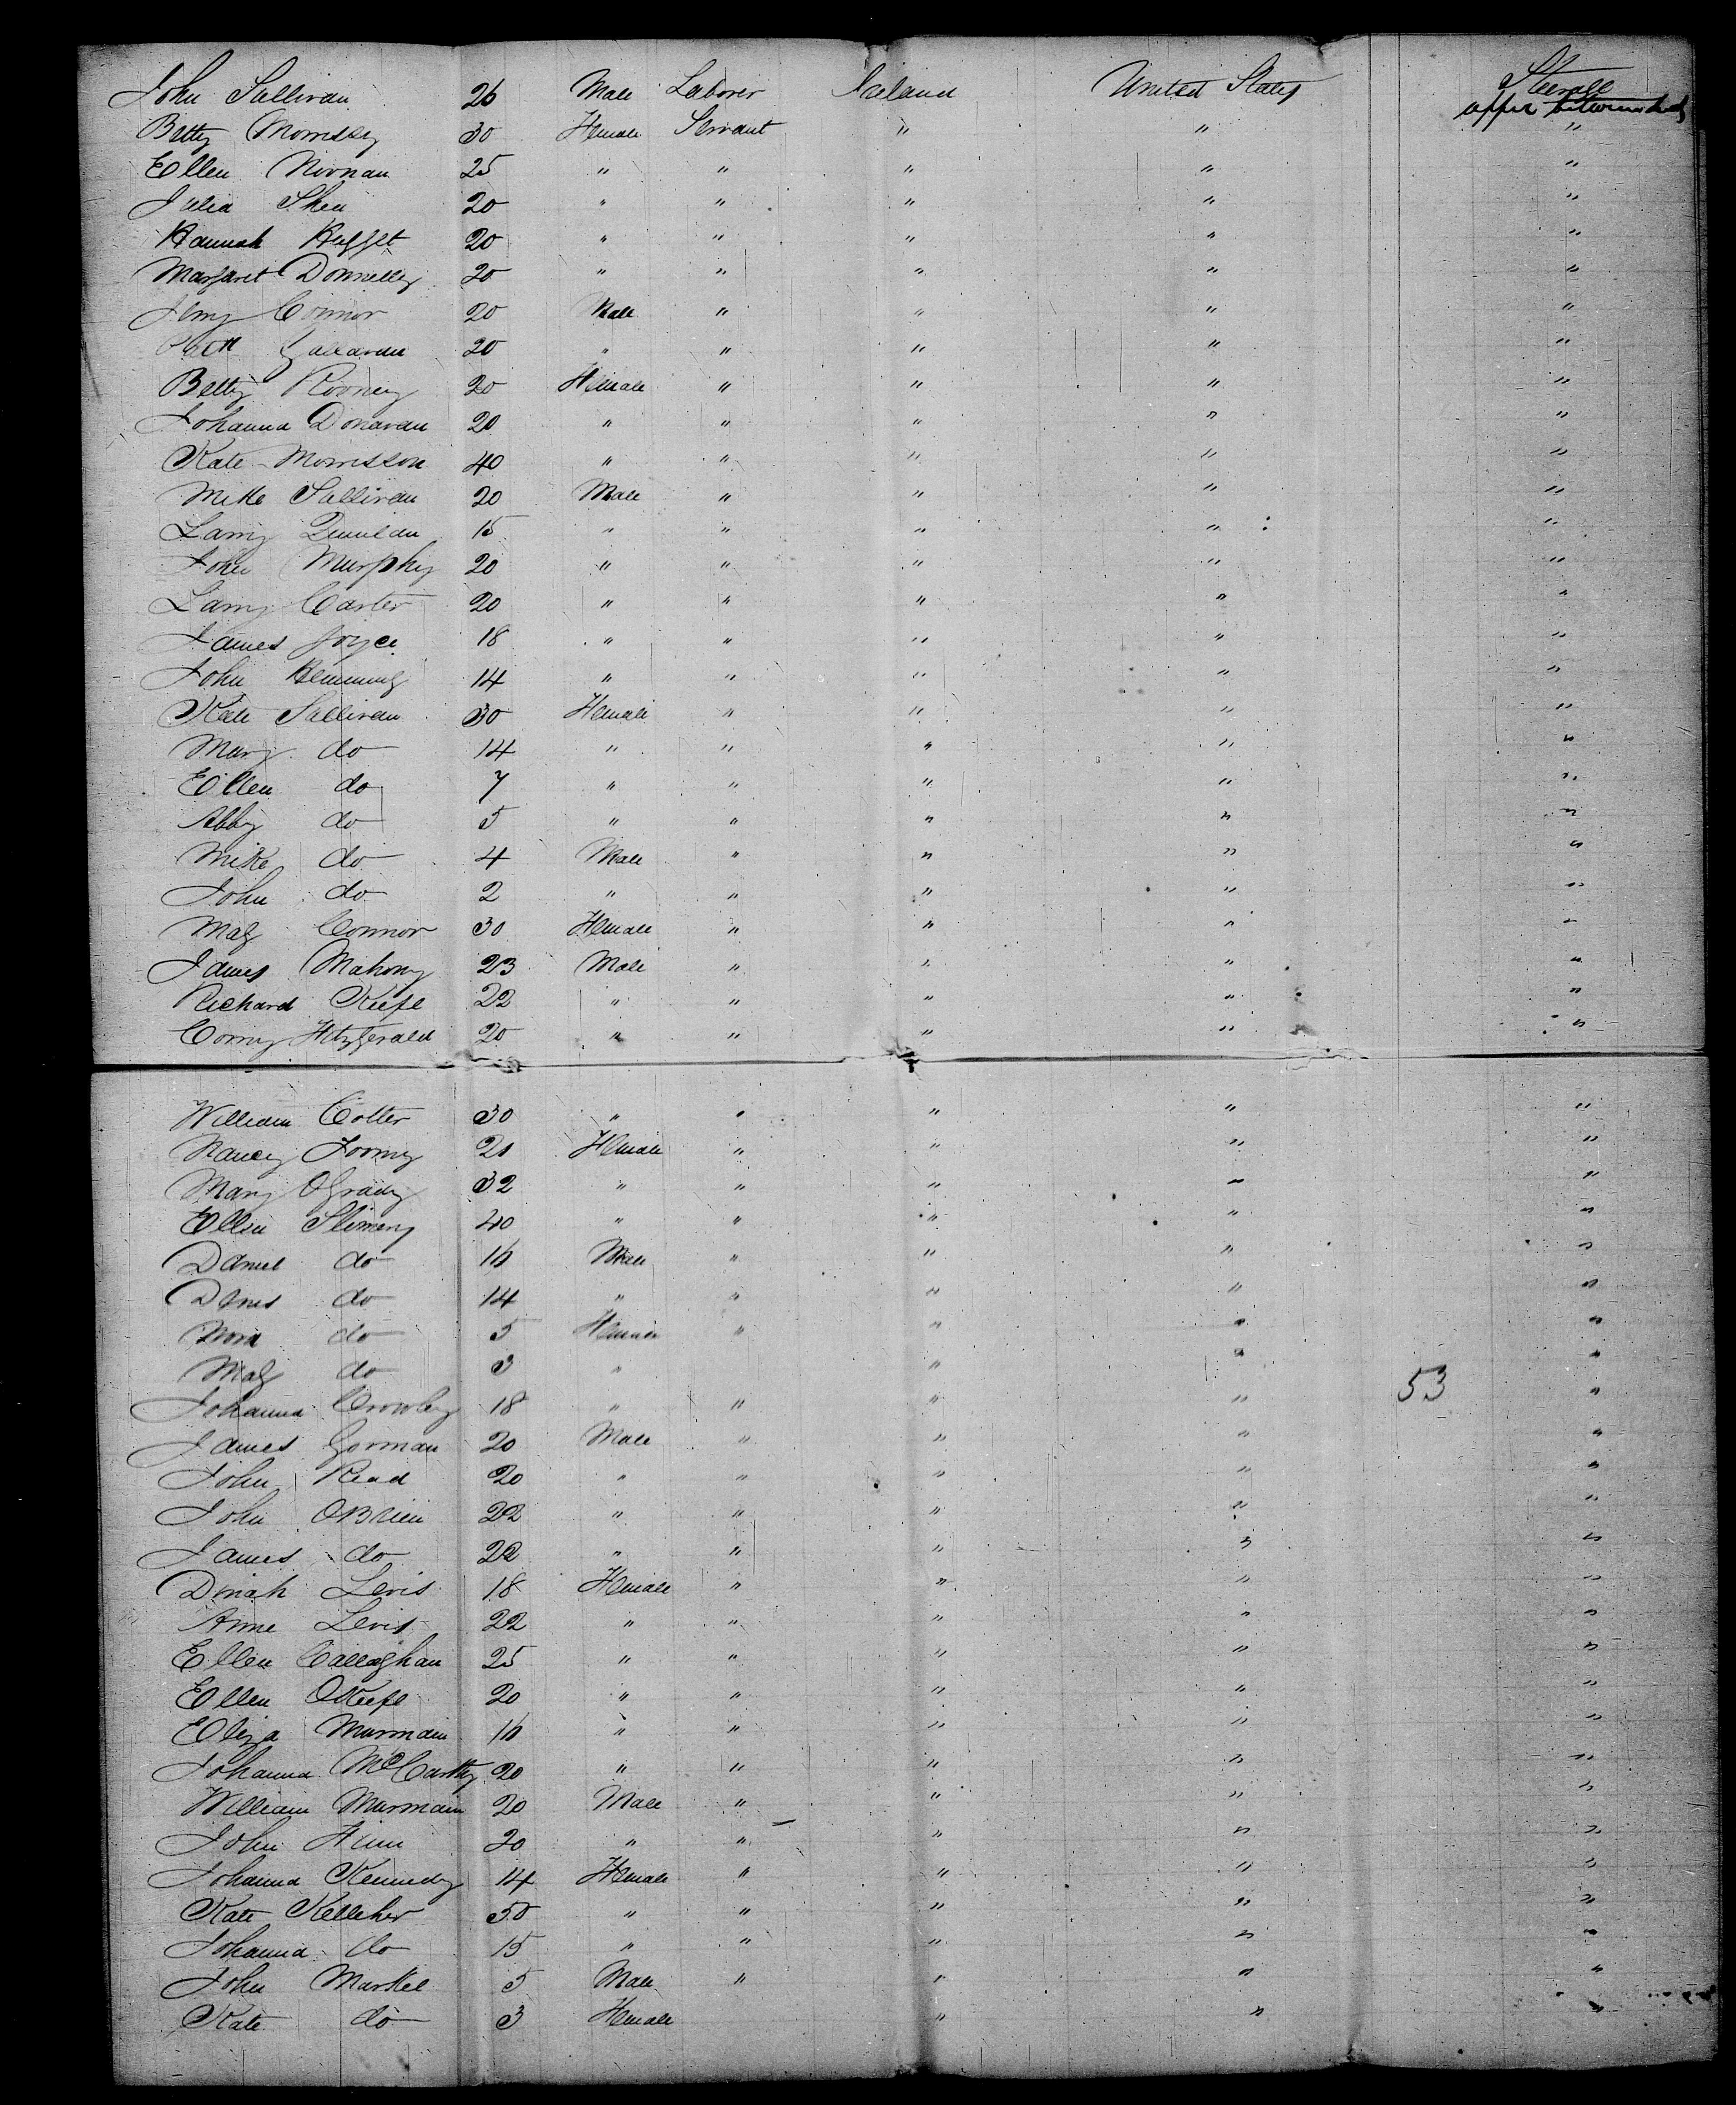 John Sullivan 26 Male Laborer Ireland United States Steerage
upper betweendecks
Betty Morrissy 30 Female Servant " " "
Ellen Noonan 25 " " " " "
Julia Shea 20 " " " " "
Hannah 20 " " " " "
Margaret Donnelly 20 " " " " "
Jerry Connor 20 Male " " " "
20 " " " " "
Betty Rooney 20 Female " " " "
Johanna Donavan 20 " " " " "
Kate Morrisson 40 " " " " "
Mike Sullivan 20 Male " " " "
Larry Quinlan 15 " " " " "
John Murphy 20 " " " " "
Larry Carter 20 " " " " "
James Joyce 18 " " " " "
John Hemming 14 " " " " "
Kate Sullivan 30 Female " " " "
Mary do 14 " " " " "
Ellen do 7 " " " " "
Abby do 5 " " " " "
Mike do 4 Male " " " "
John do 2 " " " " "
Mag Connor 30 Female " " " "
James Mahony 23 Male " " " "
Richard Keefe 22 " " " " "
Corny Fitzgerald 20 " " " " "
William Cotter 30 " " " " "
Nancy Toomy 21 Female " " " "
Mary OGrady 32 " " " " "
Ellen 40 " " " " "
Daniel do 16 Male " " " "
Denis do 14 " " " " "
Nora do 5 Female " " " "
Mag do 3 " " " "
53
Johanna Crowley 18 " " " " "
James Gorman 20 Male " " " "
John Read 20 " " " " "
John OBrien 22 " " " " "
James do 22 " " " " "
Dinah Levis 18 Female " " " "
Anne Levis 22 " " " " "
Ellen Callaghan 25 " " " " "
Ellen OKeefe 20 " " " " "
Eliza Murmain 16 " " " " "
Johanna McCarthy 20 " " " " "
William Murmain 20 Male " " " "
John Finn 20 " " " " "
Johanna Kennedy 14 Female " " " "
Kate Kelleher 50 " " " " "
Johanna do 15 " " " " "
John Markee 5 Male " " " "
Kate do 3 Female " " "